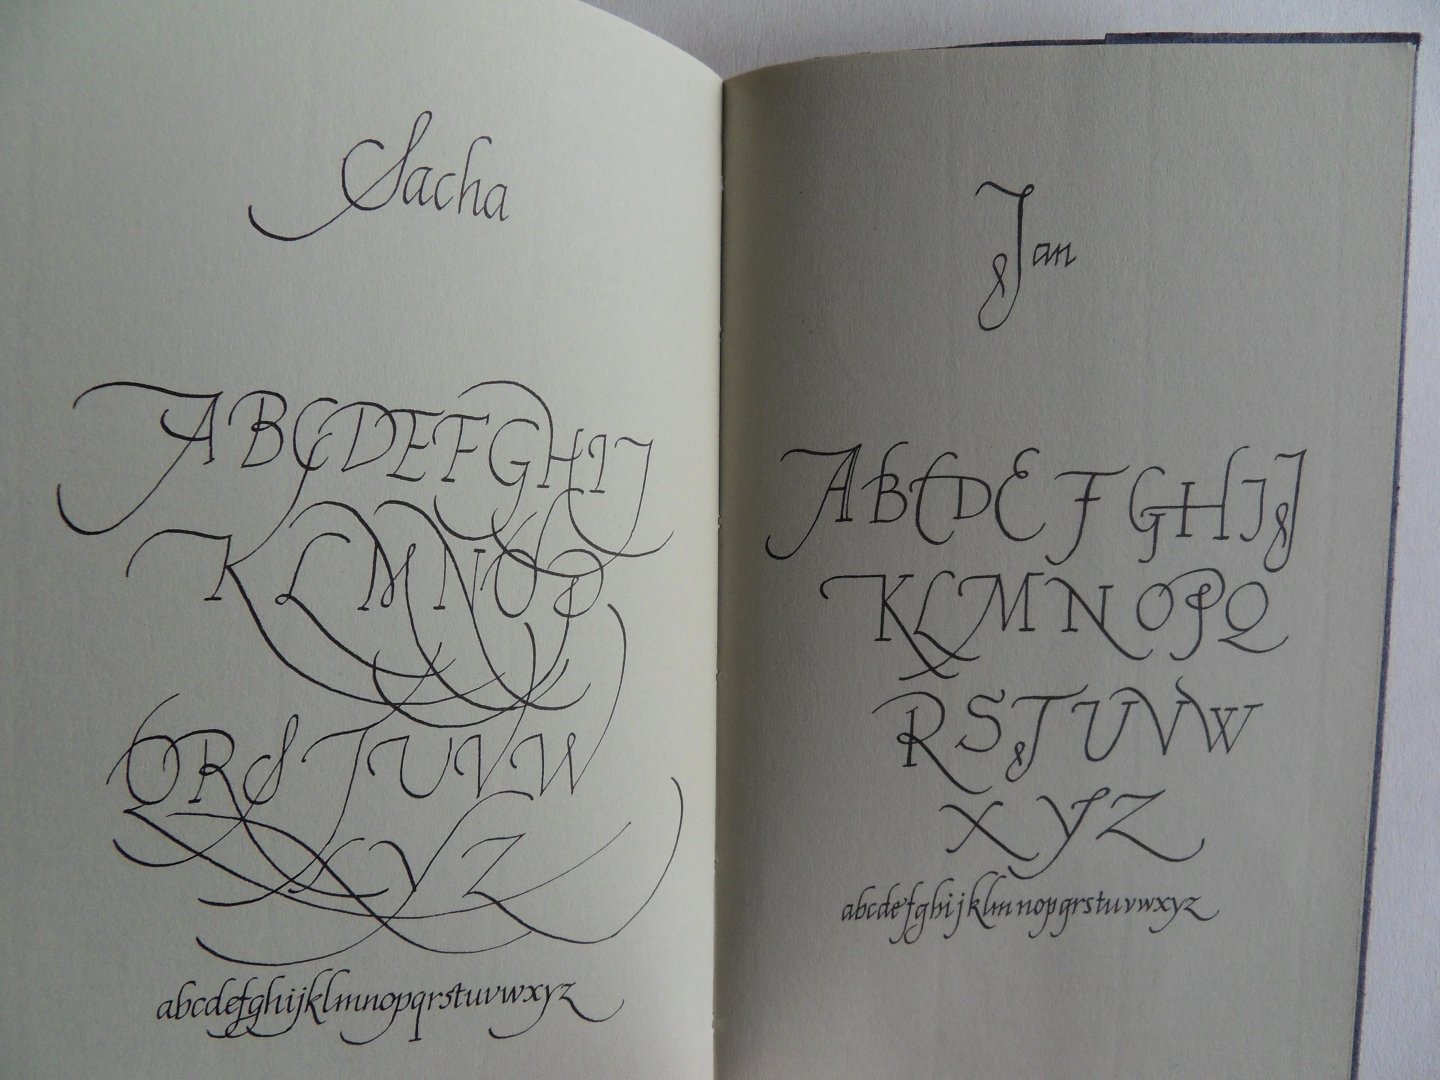 Sacha
ABCDEFGHIJ
KLMNOP
QRSTUVW
XYZ
abcdefghijklmnopqrstuvwxyz
Jan
ABCDEFGHIJ
KLMNOPQ
RSTUVW
XYZ
abcdefghijklmnopqrstuvwxyz